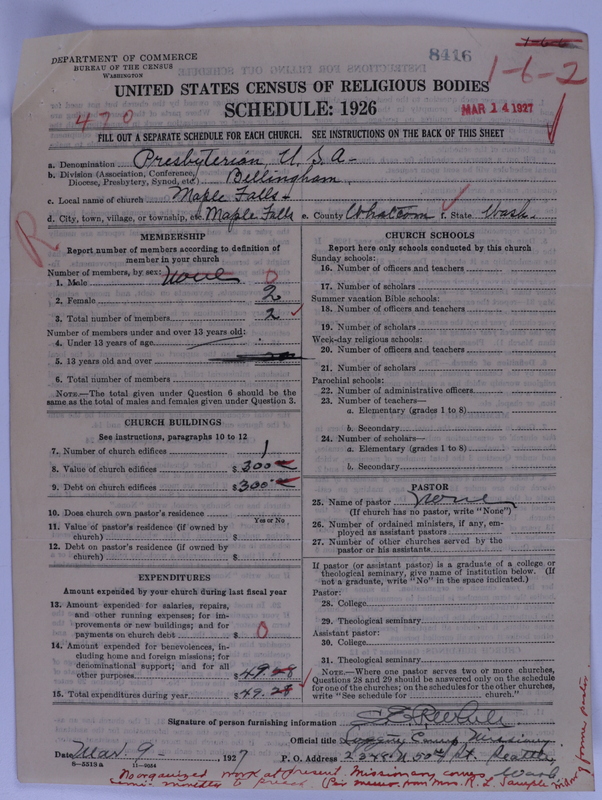 DEPARTMENT OF COMMERCE
BUREAU OF THE CENSUS
WASHINGTON
8416
1-6-2
UNITED STATES CENSUS OF RELIGIOUS BODIES
SCHEDULE: 1926
470
MAR 14 1927
FILL OUT A SEPARATE SCHEDULE FOR EACH CHURCH. SEE INSTRUCTIONS ON THE BACK OF THIS SHEET
a. Denomination Presbyterian, U.S.A-
b. Division (Association, Conference, Diocese, Presbytery, Synod, etc.) Bellingham
c. Local name of church Maple Falls-
d. City, town, village, or township, etc. Maple Falls e. County Whatcom f. State Wash.
R
MEMBERSHIP
Report number of members according to definition of member in your church
Number of members, by sex:
1. Male None 0
2. Female 2
3. Total number of members 2
Number of members under and over 13 years old:
4. Under 13 years of age
5. 13 years old and over
6. Total number of members
NOTE.—The total given under Question 6 should be the same as the total of males and females given under Question 3.
CHURCH BUILDINGS
See instructions, paragraphs 10 to 12
7. Number of church edifices 1
8. Value of church edifices $ 300
9. Debt on church edifices $ 300
10. Does church own pastor's residence
Yes or No
11. Value of pastor's residence (if owned by church) $
12. Debt on pastor's residence (if owned by church) $
EXPENDITURES
Amount expended by your church during last fiscal year
13. Amount expended for salaries, repairs, and other running expenses; for improvements or new buildings; and for payments on church debt $ 0
14. Amount expended for benevolences, including home and foreign missions; for denominational support; and for all other purposes $ 49.28
15. Total expenditures during year $ 49.28
CHURCH SCHOOLS
Report here only schools conducted by this church
Sunday schools:
16. Number of officers and teachers
17. Number of scholars
Summer vacation Bible schools:
18. Number of officers and teachers
19. Number of scholars
Week-day religious schools:
20. Number of officers and teachers
21. Number of scholars
Parochial schools:
22. Number of administrative officers
23. Number of teachers—
a. Elementary (grades 1 to 8)
b. Secondary
24. Number of scholars—
a. Elementary (grades 1 to 8)
b. Secondary
PASTOR
25. Name of pastor None
(If church has no pastor, write "None")
26. Number of ordained ministers, if any, employed as assistant pastors
27. Number of other churches served by the pastor or his assistants
If pastor (or assistant pastor) is a graduate of a college or theological seminary, give name of institution below. (If not a graduate, write "No" in the space indicated.)
Pastor:
28. College
29. Theological seminary
Assistant pastor:
30. College
31. Theological seminary
NOTE.—Where one pastor serves two or more churches, Questions 28 and 29 should be answered only on the schedule for one of the churches; on the schedules for the other churches, write "See schedule for church."
Signature of person furnishing information
Official title Logging Camp Missionary
Date Mar. 9- 1927 P. O. Address 2348 N. 50th St. Seattle, Wash.
8-5518a 11-9054
No organized work at present. Missionary comes
monthly to preach (Per memo. from Mrs. R. L. Sample widow of former pastor